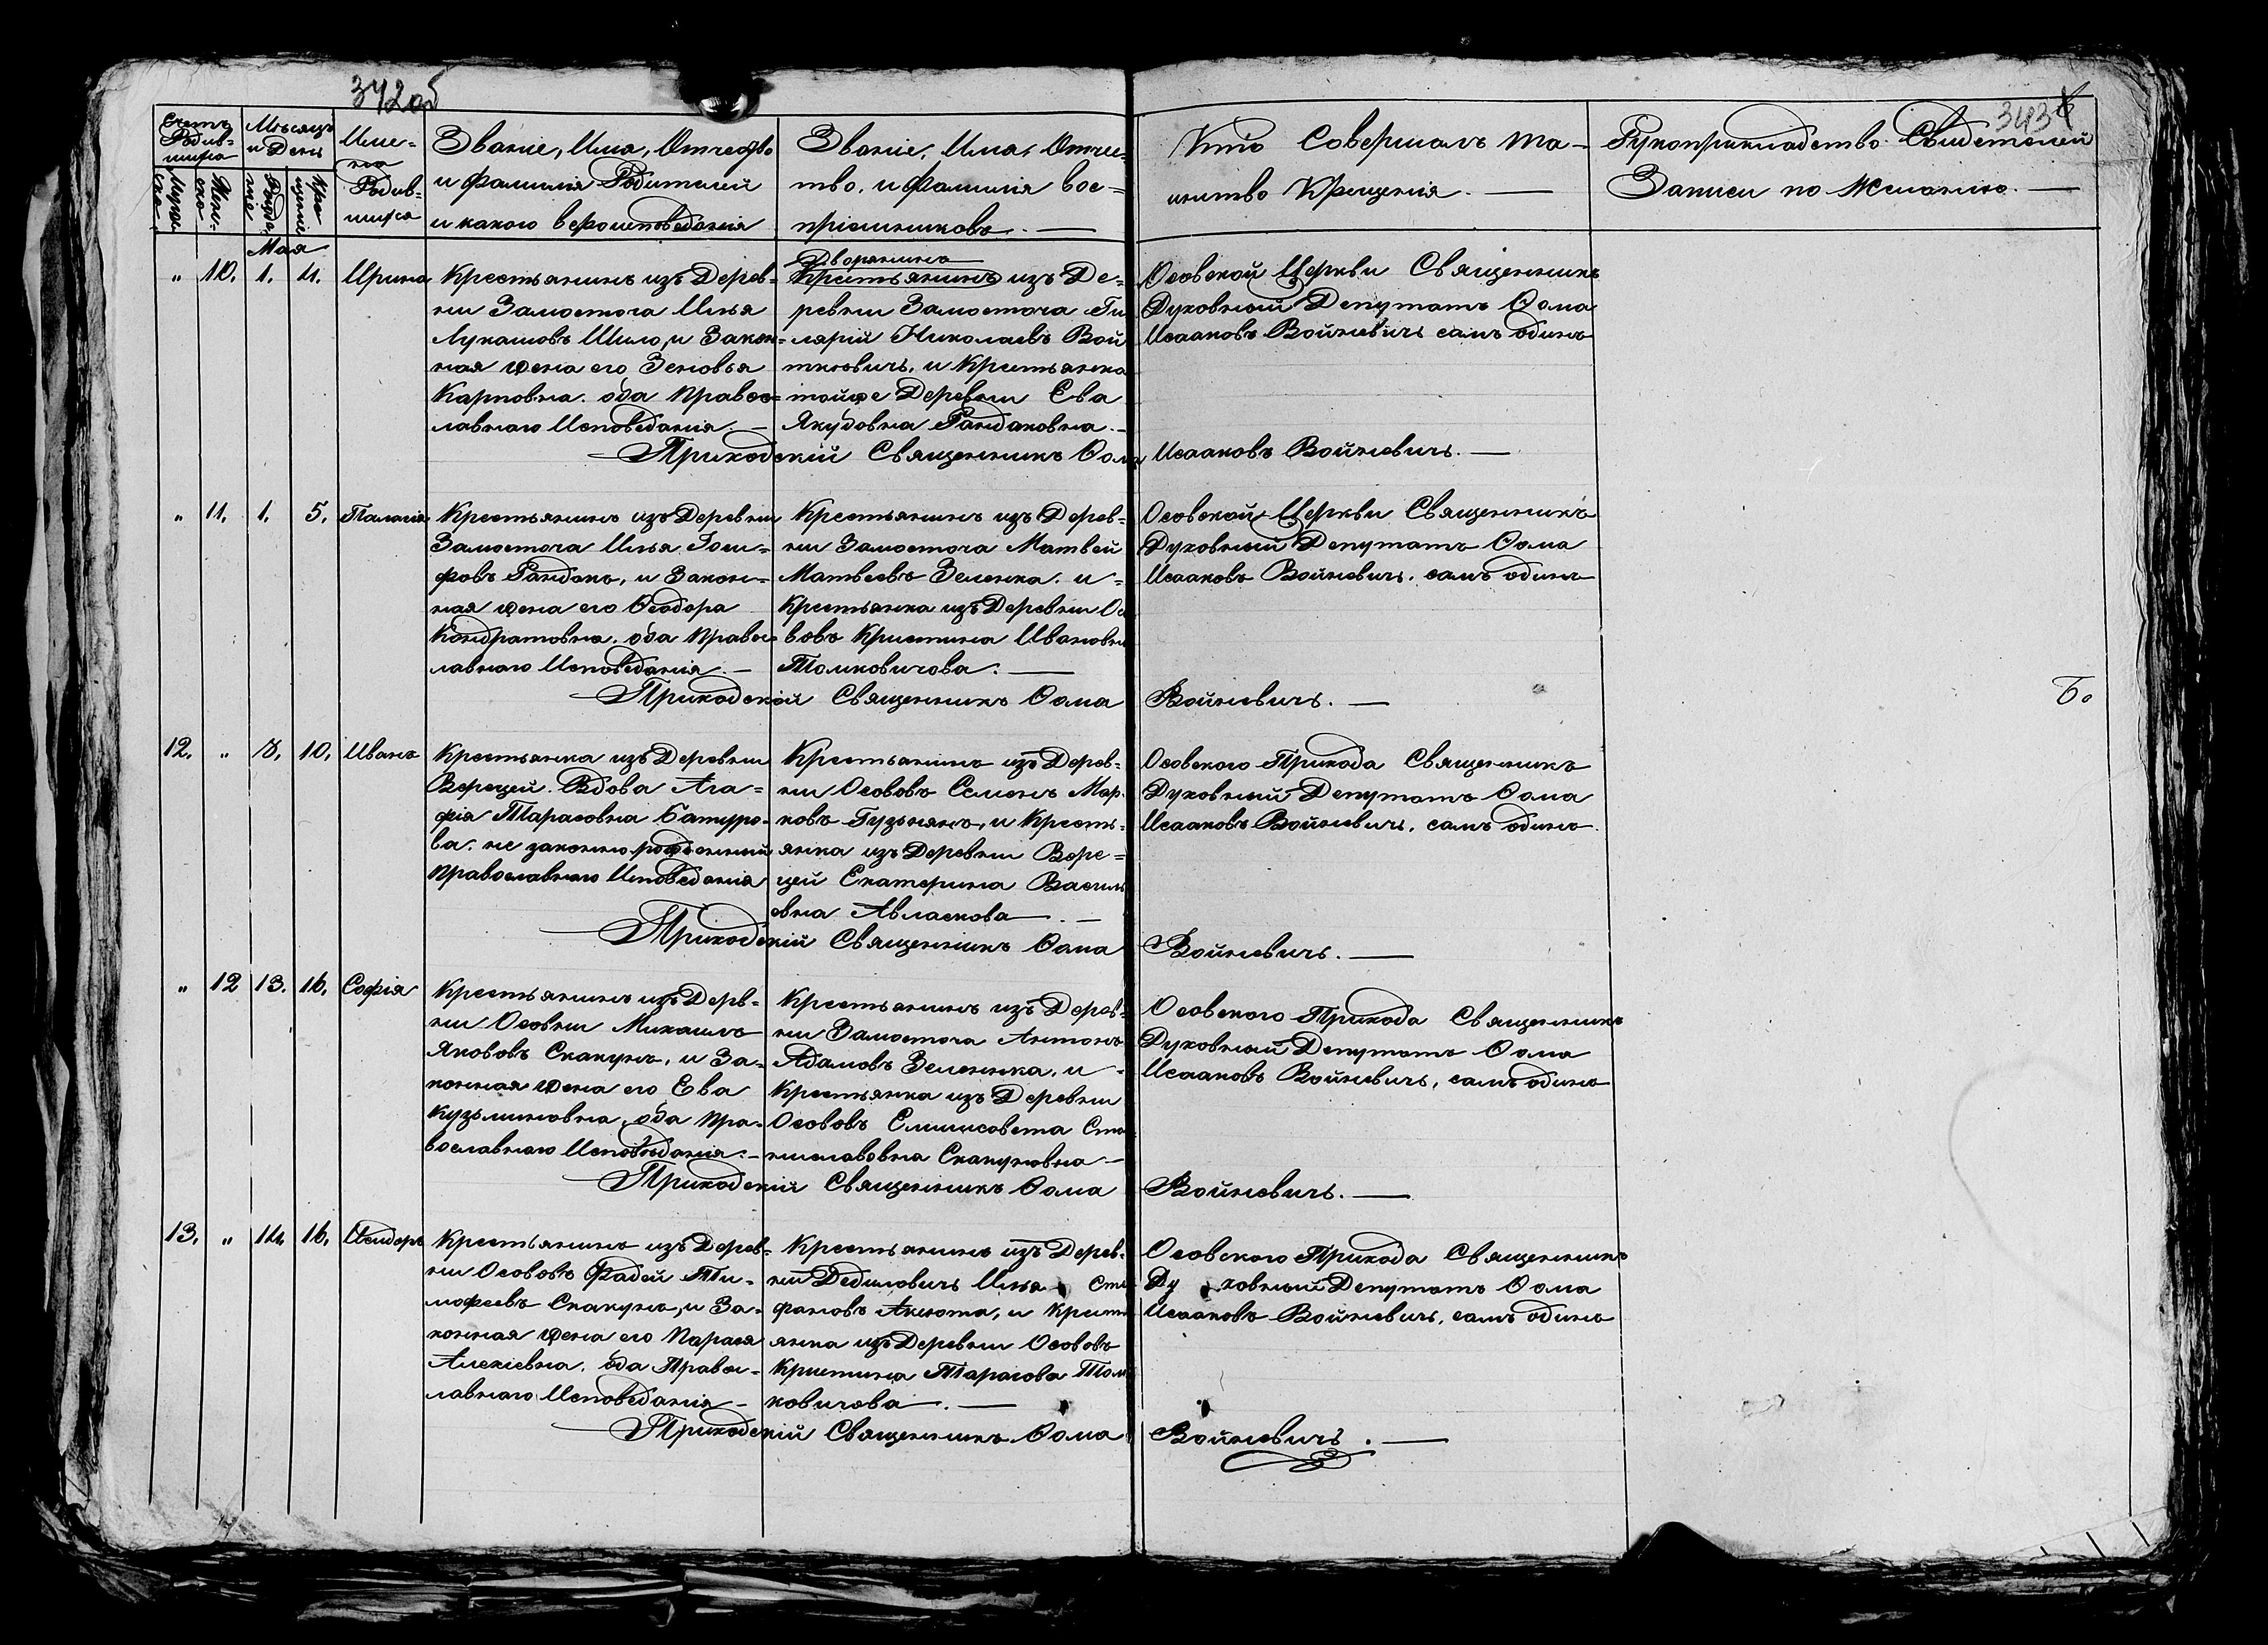 342об
3434
Счетъ
Родив-
шихся
Мѣсяцъ
и День
Име-
на
Родив-
шихся
Мужес-
ска
Жен-
ска
Рожде-
ніе
Кре-
щеніе
Званіе, Имя, Отчество
и фамилія Родителей
и какого вероисповеданія
Званіе, Имя, Отчес-
тво, и фамилія вос-
пріемниковъ. —
Кто Совершалъ та-
инство Крещенія. —
Рукоприкладство Свидетелей
Записи по Желанію. —
Мая
„ 10. 1. 4. Ирина
Крестьянинъ изъ Дерев-
ни Замосточа Илья
Лукашовъ Шило, и Закон-
ная жена его Зеновья
Карповна. оба Правос-
лавнаго Исповеданія. —
Дворянинъ
Крестьянинъ изъ Де-
ревни Замосточа Ги
лярій Николаевъ Вой
ткевичъ, и Крестьянка
тойже Деревни Ева
Якубовна Рандаковна. —
Осовской Церкви Священникъ
Духовный Депутатъ Ѳома
Исааковъ Войневичъ самъ одинъ
Приходскій Священникъ Ѳома Исааковъ Войневичъ. —
„ 11. 1. 5. Палагія
Крестьянинъ изъ Деревни
Замосточа Илья Іоси-
фовъ Рандакъ, и Закон-
ная жена его Ѳеодора
Кондратовна. оба Правос-
лавнаго Исповеданія. —
Крестьянинъ изъ Дерев-
ни Замосточа Матвей
Матвеевъ Зеленка. и -
Крестьянка изъ Деревни Ос
вовъ Кристина Ивановна
Толковичова. —
Осовской Церкви Священникъ
Духовный Депутатъ Ѳома
Исааковъ Войневичъ. самъ одинъ
Приходской Священникъ Ѳома Войневичъ. —
12. „ 8. 10. Иванъ
Крестьянка изъ Деревни
Верецей. Вдова Ага-
фія Тарасовна Батуро-
ва. не законно рожденный
Православнаго Исповеданія
Крестьянинъ изъ Дерев-
ни Осововъ Семенъ Мар-
ковъ Гузьнякъ, и Кресть-
янка изъ Деревни Вере-
цей Екатерина Василь
евна Авласкова. —
Осовского Прихода Священникъ
Духовный Депутатъ Ѳома
Исааковъ Войневичъ, самъ одинъ.
Приходскій Священникъ Ѳома Войневичъ. —
„ 12 13. 16. Софія
Крестьянинъ изъ Дерв-
ни Осовни Михаилъ
Якововъ Скакунъ, и За-
конная жена его Ева
Кузьминовна, оба Пра-
вославнаго Исповѣданія. —
Крестьянинъ изъ Дерев-
ни Замосточа Антонъ
Адамовъ Зеленка, и -
Крестьянка изъ Деревни
Осововъ Елиисовета Ста
ниславовна Скакуновна —
Осовского Прихода Священникъ
Духовный Депутатъ Ѳома
Исааковъ Войневичъ, самъ одинъ
Приходскій Священникъ Ѳома Войневичъ. —
13. „ 14. 16. Исидоръ
Крестьянинъ изъ Дерев-
ни Осововъ Фадей Ти-
мофеевъ Скакунъ, и За-
конная жена его Парася
Алексіевна. оба Правос-
лавнаго Исповеданія —
Крестьянинъ изъ Дерев-
ни Дедиловичъ Илья Сте
фановъ Аксюта, и Кресть
янка изъ Деревни Осововъ
Кристина Тарасова Тол
ковичова. —
Осовского Прихода Священникъ
Духовный Депутатъ Ѳома
Исааковъ Войневичъ, самъ одинъ
Приходскій Священникъ Ѳома Войневичъ. —